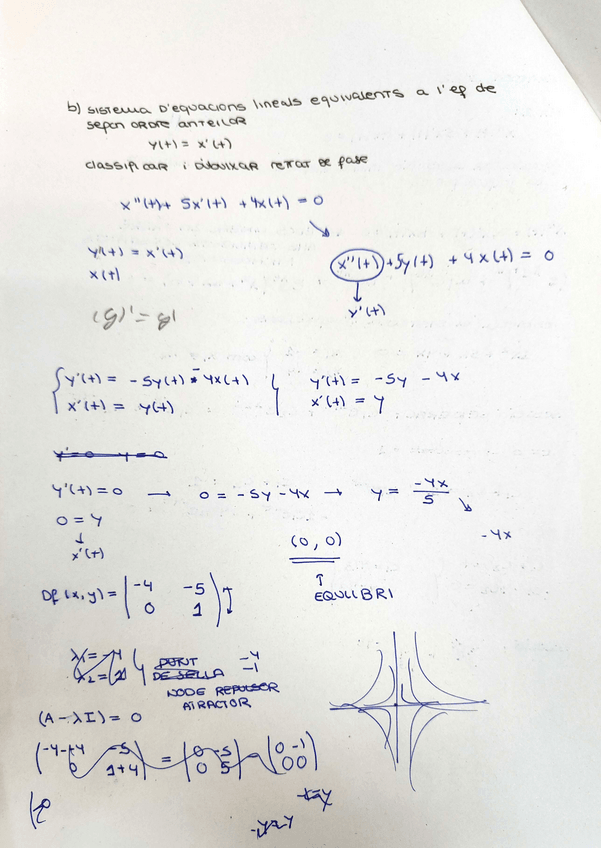 b) SISTEMA D'EQUACIONS lineals EQUIVALENTS a l'eq de
segon ORDRE ANTERIOR
y(t) = x'(t)
classificar i dibuixar retrat de fase
x''(t) + 5x'(t) + 4x(t) = 0
y(t) = x'(t)
x''(t) + 5y(t) + 4x(t) = 0
x(t)
y'(t)
{ y'(t) = -5y(t) - 4x(t)
x'(t) = y(t)
{ y'(t) = -5y - 4x
x'(t) = y
y'(t) = 0 → 0 = -5y - 4x → y = -4x/5
-4x
0 = y
↓
x'(t)
(0,0)
↑
EQUILIBRI
Df(x,y) = ( -4 -5
0 1 )
λ1 = -4
PUNT
DE SELLA
-4
-1
NODE REPULSOR
ATRACTOR
(A - λI) = 0
( -4-+4 -5
0 1+4 ) = ( 0 -5
0 5 ) ( 0 -1
0 0 )